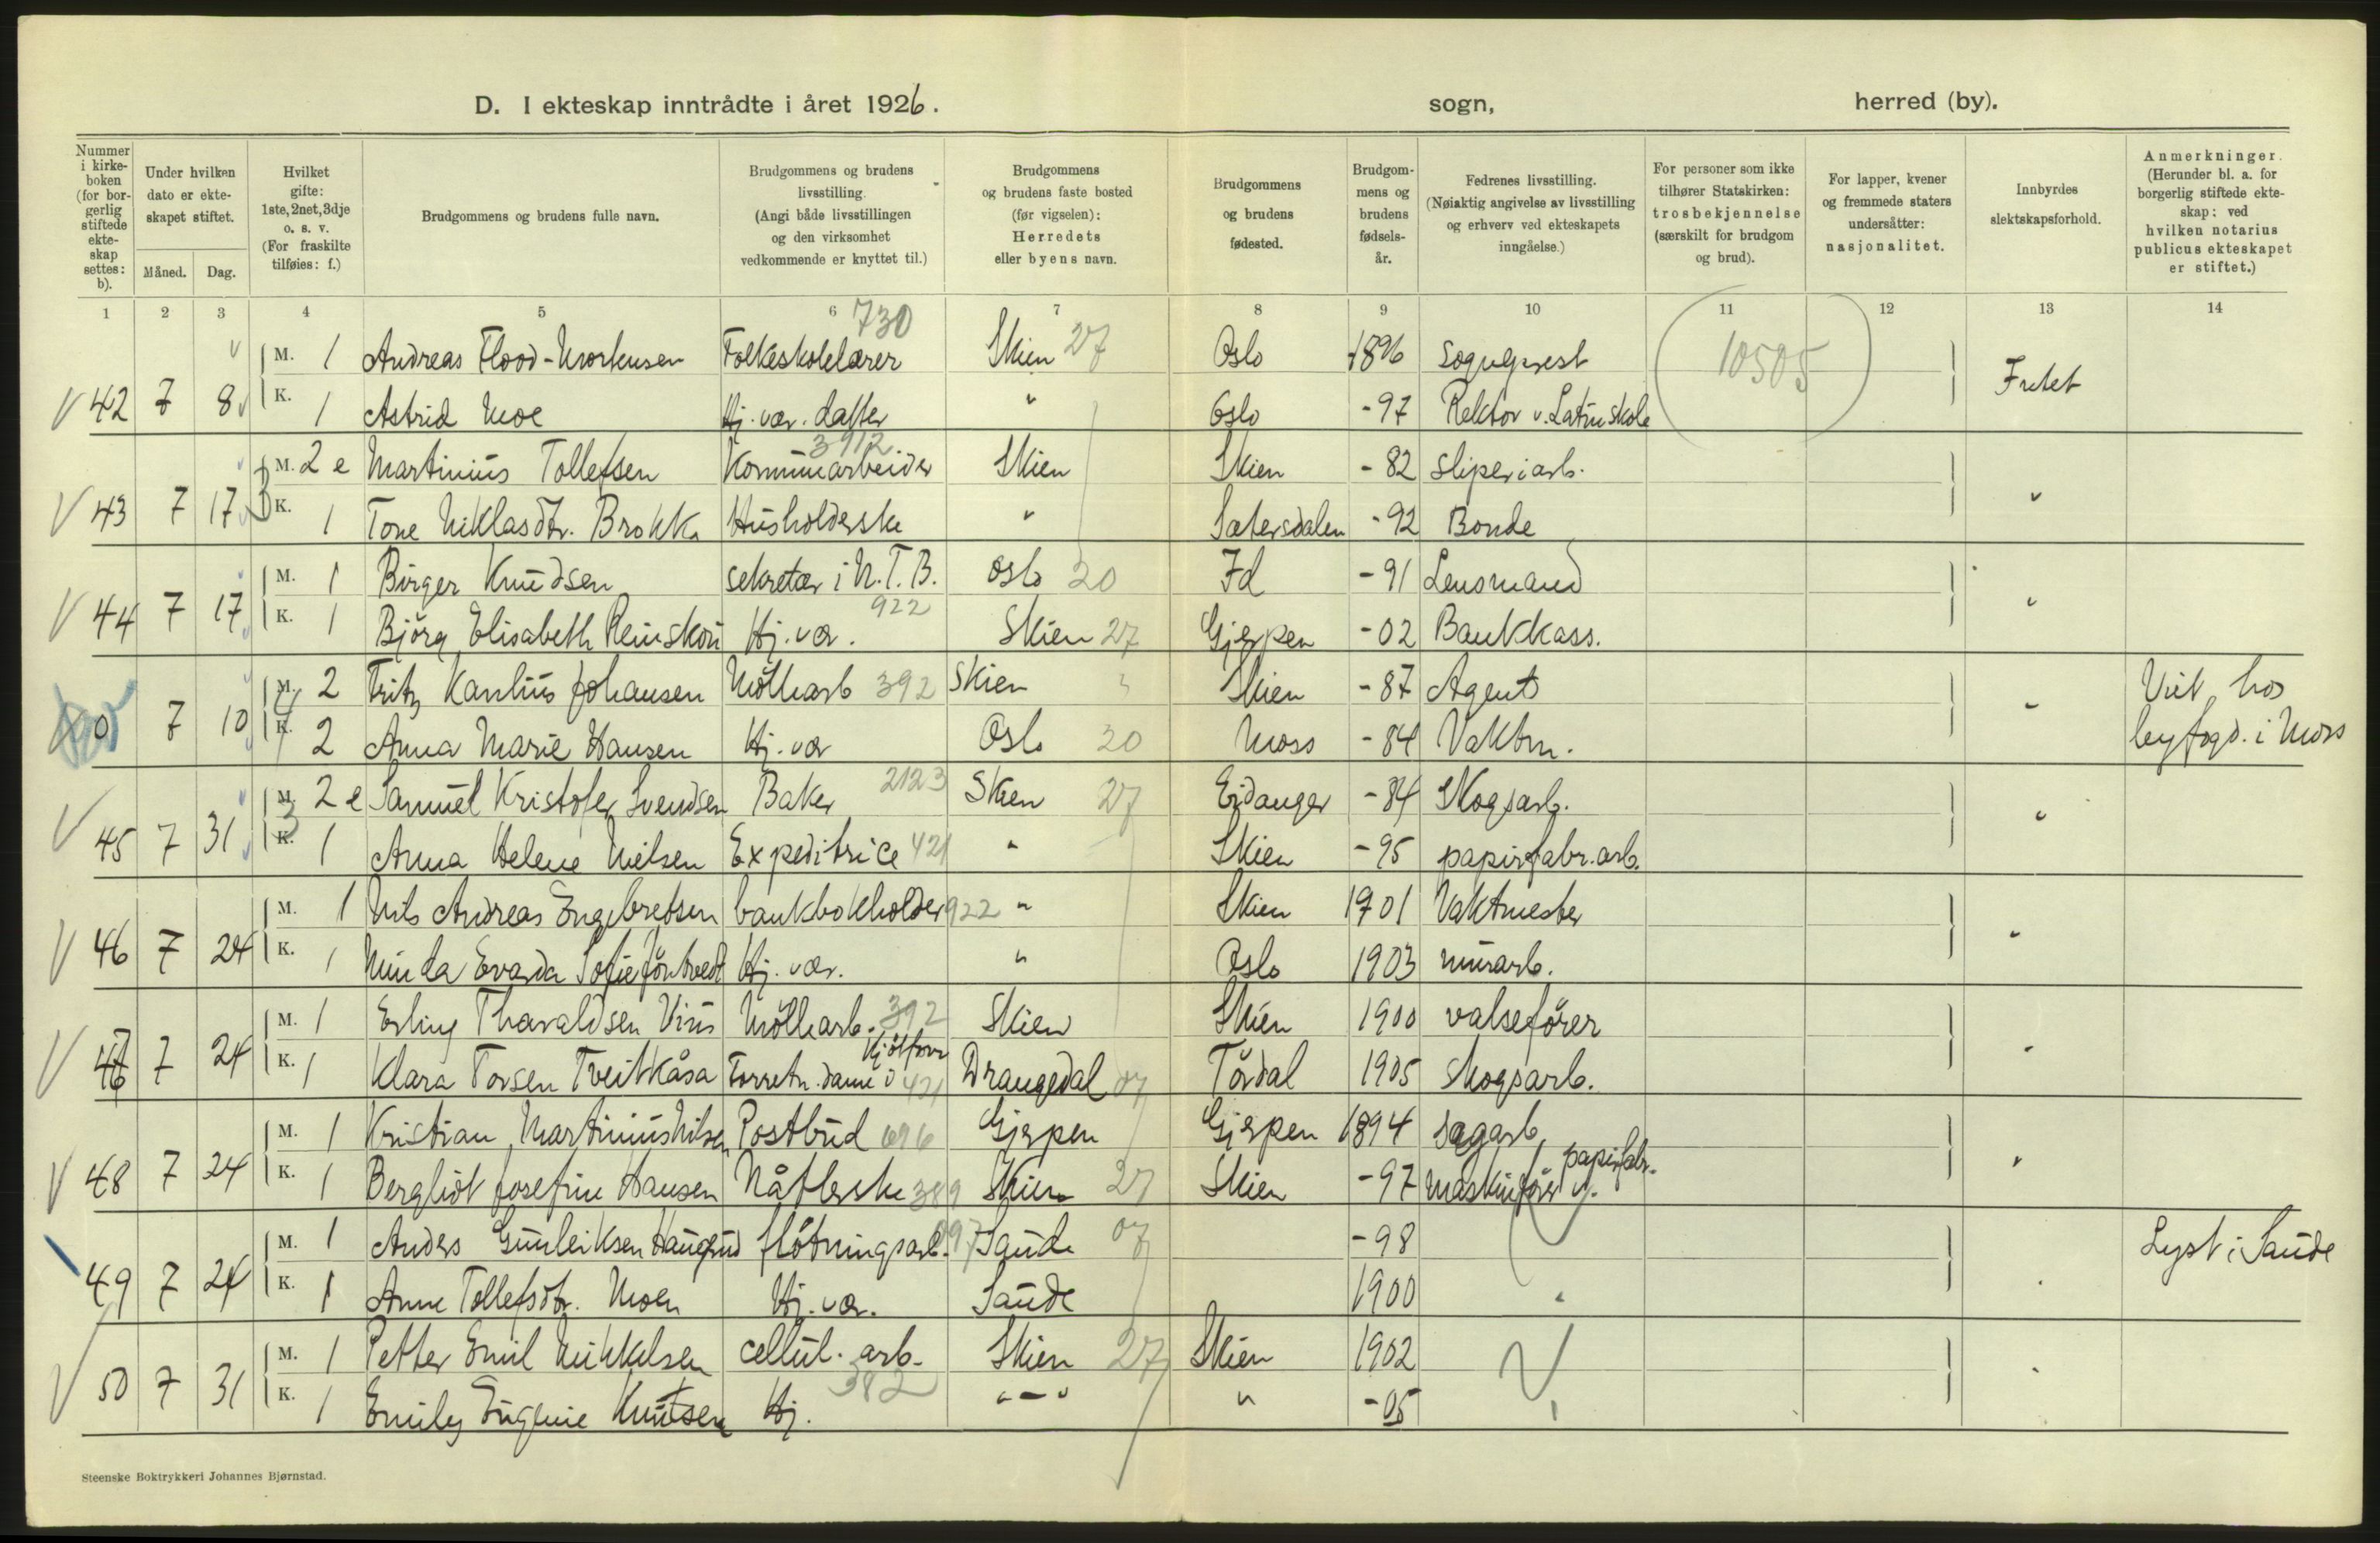 D. I ekteskap inntrådte i året 1926. sogn, herred (by).
Nummer i kirkeboken (for borgerlig stiftede ekteskap settes: b).
Under hvilken dato er ekteskapet stiftet.
Måned. Dag.
Hvilket gifte: 1ste, 2net, 3dje o. s. v. (For fraskilte tilføies: f.)
Brudgommens og brudens fulle navn.
Brudgommens og brudens livsstilling. (Angi både livsstillingen og den virksomhet vedkommende er knyttet til.)
Brudgommens og brudens faste bosted (før vigselen): Herredets eller byens navn.
Brudgommens og brudens fødested.
Brudgommens og brudens fødselsår.
Fedrenes livsstilling. (Nøiaktig angivelse av livsstilling og erhverv ved ekteskapets inngåelse.)
For personer som ikke tilhører Statskirken: trosbekjennelse (særskilt for brudgom og brud).
For lapper, kvener og fremmede staters undersåtter: nasjonalitet.
Innbyrdes slektskapsforhold.
Anmerkninger. (Herunder bl. a. for borgerlig stiftede ekteskap: ved hvilken notarius publicus ekteskapet er stiftet.)
1 2 3 4 5 6 7 8 9 10 11 12 13 14
730
M. 1 Andreas Flood-Mortensen Folkeskolelærer Skien 27 Oslo 1896 Sogneprest 10505 Intet
42 7 8 K. 1 Astrid Moe Hj. vær. datter " Oslo -97 Rektor v. Latinskole
3912
M. 2 e Martinius Tollefsen Kommunearbeider Skien Skien -82 Sliperiarb.
43 7 17 K. 1 Tone Niklasdtr. Brokka Husholderske " Sætersdalen -92 Bonde "
M. 1 Birger Knudsen sekretær i N.T.B. Oslo 20 Id -91 Lensmand
922
44 7 17 K. 1 Bjørg Elisabeth Reinskou Hj. vær. Skien 27 Gjerpen -02 Bankkass. "
M. 2 Fritz Kanlius Johansen Möllearb 392 Skien Skien -87 Agent Viet hos
0 7 10 K. 2 Anna Marie Hansen Hj. vær Oslo 20 Moss -84 Vaktm. " byfogd. i Moss
M. 2 e Samuel Kristofer Svendsen Baker 2123 Skien 27 Eidanger -84 Skogsarb.
45 7 31 K. 1 Anna Helene Nielsen Expeditrice 421 " Skien -95 papirfabr. arb. "
M. 1 Nils Andreas Engebretsen bankbokholder 922 " Skien 1901 Vaktmester
46 7 24 K. 1 Evarda Sofie Hj. vær. " Oslo 1903 murarb. "
M. 1 Erling Tharaldsen Möllearb. 392 Skien Skien 1900 valsefører
47 7 24 K. 1 Klara Torsen Tveitkåsa Forretn. dame 421 Drangedal 07 Tördal 1905 Skogsarb. "
M. 1 Kristian Martinius Nilsen Postbud 696 Gjerpen Gjerpen 1894 Sagarb.
48 7 24 K. 1 Bergliot Josefine Hansen Nåtlerske 389 Skien 27 Skien -97 Maskinfører v. papirfabr. "
M. 1 Anders Gunleiksen Haugrud fløtningsarb. 097 Saude 07 -98 Lyst i Saude
49 7 24 K. 1 Anne Tollefsdtr. Moen Hj. vær. Saude 1900 "
M. 1 Petter Emil Mikkelsen cellul. arb. Skien 27 Skien 1902
382
50 7 31 K. 1 Emily Eugenie Knutsen Hj. "-" " -05
Steenske Boktrykkeri Johannes Bjørnstad.